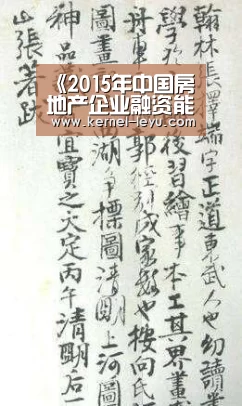 翰林張擇端字正道東武人也幼讀書
學於 後習繪事本工其界畫
舟車 郭徑別成家數也按向氏
圖畫 西湖爭標圖清明上河圖
神品 宜寶之大定丙午清明后一
山張著跋
《2015年中国房
地产企业融资能
www.kernel-leyu.com